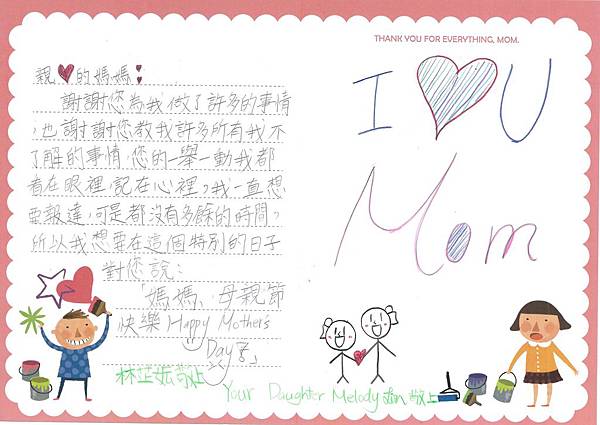 THANK YOU FOR EVERYTHING, MOM.
親❤的媽媽:
謝謝您為我做了許多的事情
,也謝謝您教我許多所有我不
了解的事情,您的一舉一動我都
看在眼裡,記在心裡,我一直想
要報達,可是都沒有多餘的時間,
所以我想要在這個特別的日子
對您說:
「媽媽、母親節
快樂Happy Mothers
Day
林芷 敬上
I ❤ U
Mom
Your Daughter Melody Lin 敬上